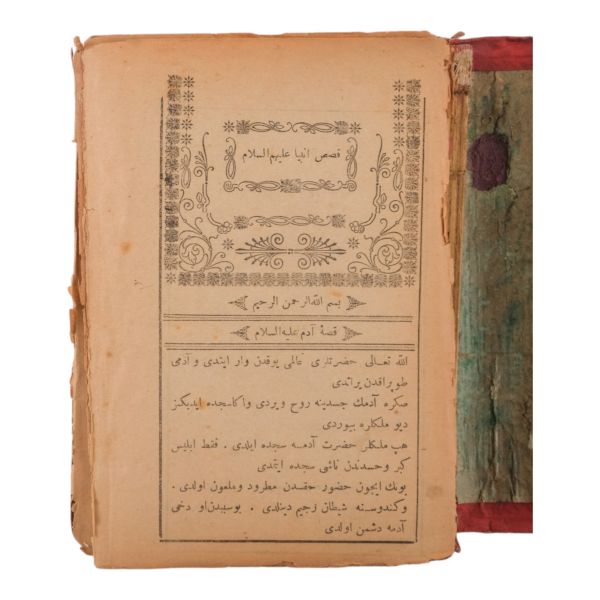 قصص انبیا علیهم السلام
بسم الله الرحمن الرحیم
قصهٔ آدم علیه السلام
الله تعـالی حضرتلری عالمی یوقدن وار ایتدی و آدمی
طوپراقدن یراتدی
صکره آدمك جسدینه روح ویردی واکاسجده ایدیکز
دیو ملکلره بیوردی
هپ ملکلر حضرت آدمـه سجده ایلدی . فقط ابلیس
کبر وحسدندن ناشی سجده ایتمدی
بونك ایچون حضور حقدن مطرود وملعون اولدی .
وکندوسنه شیطان رجیم دینلدی . بوسببدن او دخی
آدمه دشمن اولدی